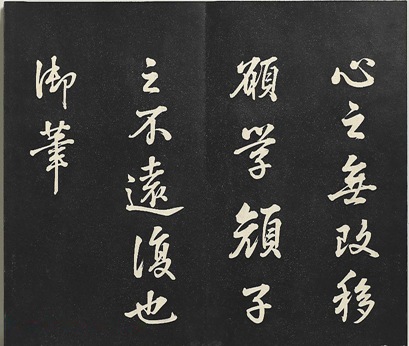 心之無改移
願學顔子
之不遠復也
御筆